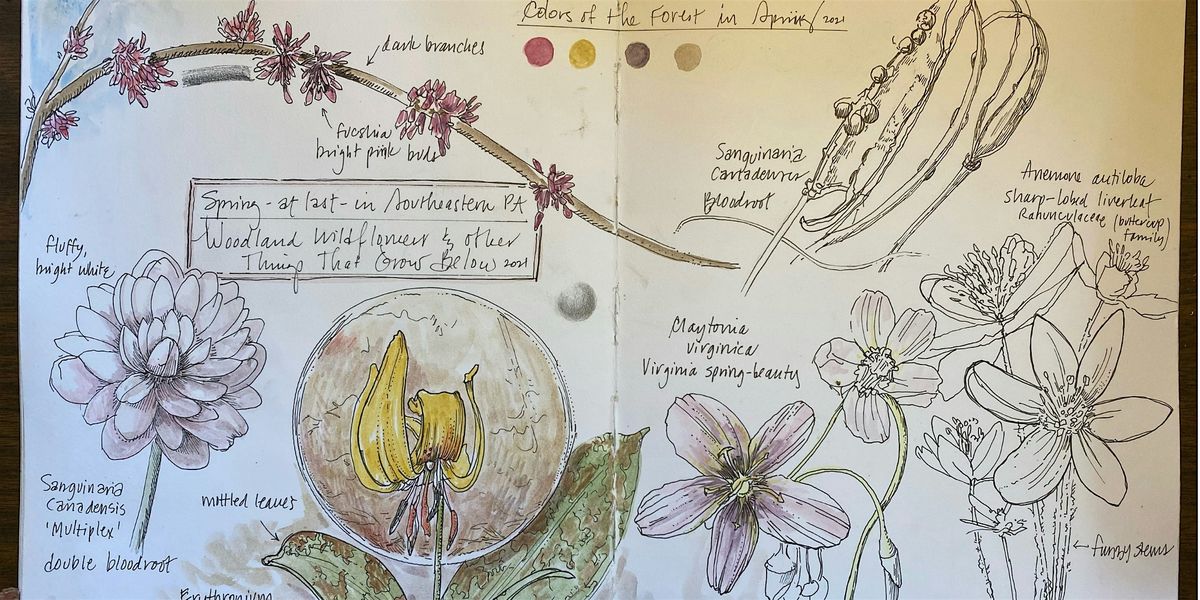 Colors of the Forest in April/2021
dark branches
fucshia
bright pink buds
Spring - at last - in Southeastern PA
Woodland Wildflowers & other
Things That Grow Below 2021
fluffy,
bright white
Sanguinaria
Canadensis
'Multiplex'
double bloodroot
mottled leaves
Erythronium
Sanguinaria
Canadensis
Bloodroot
Claytonia
virginica
Virginia spring-beauty
Anemone acutiloba
sharp-lobed liverleaf
Ranunculaceae (buttercup)
family
funny stems